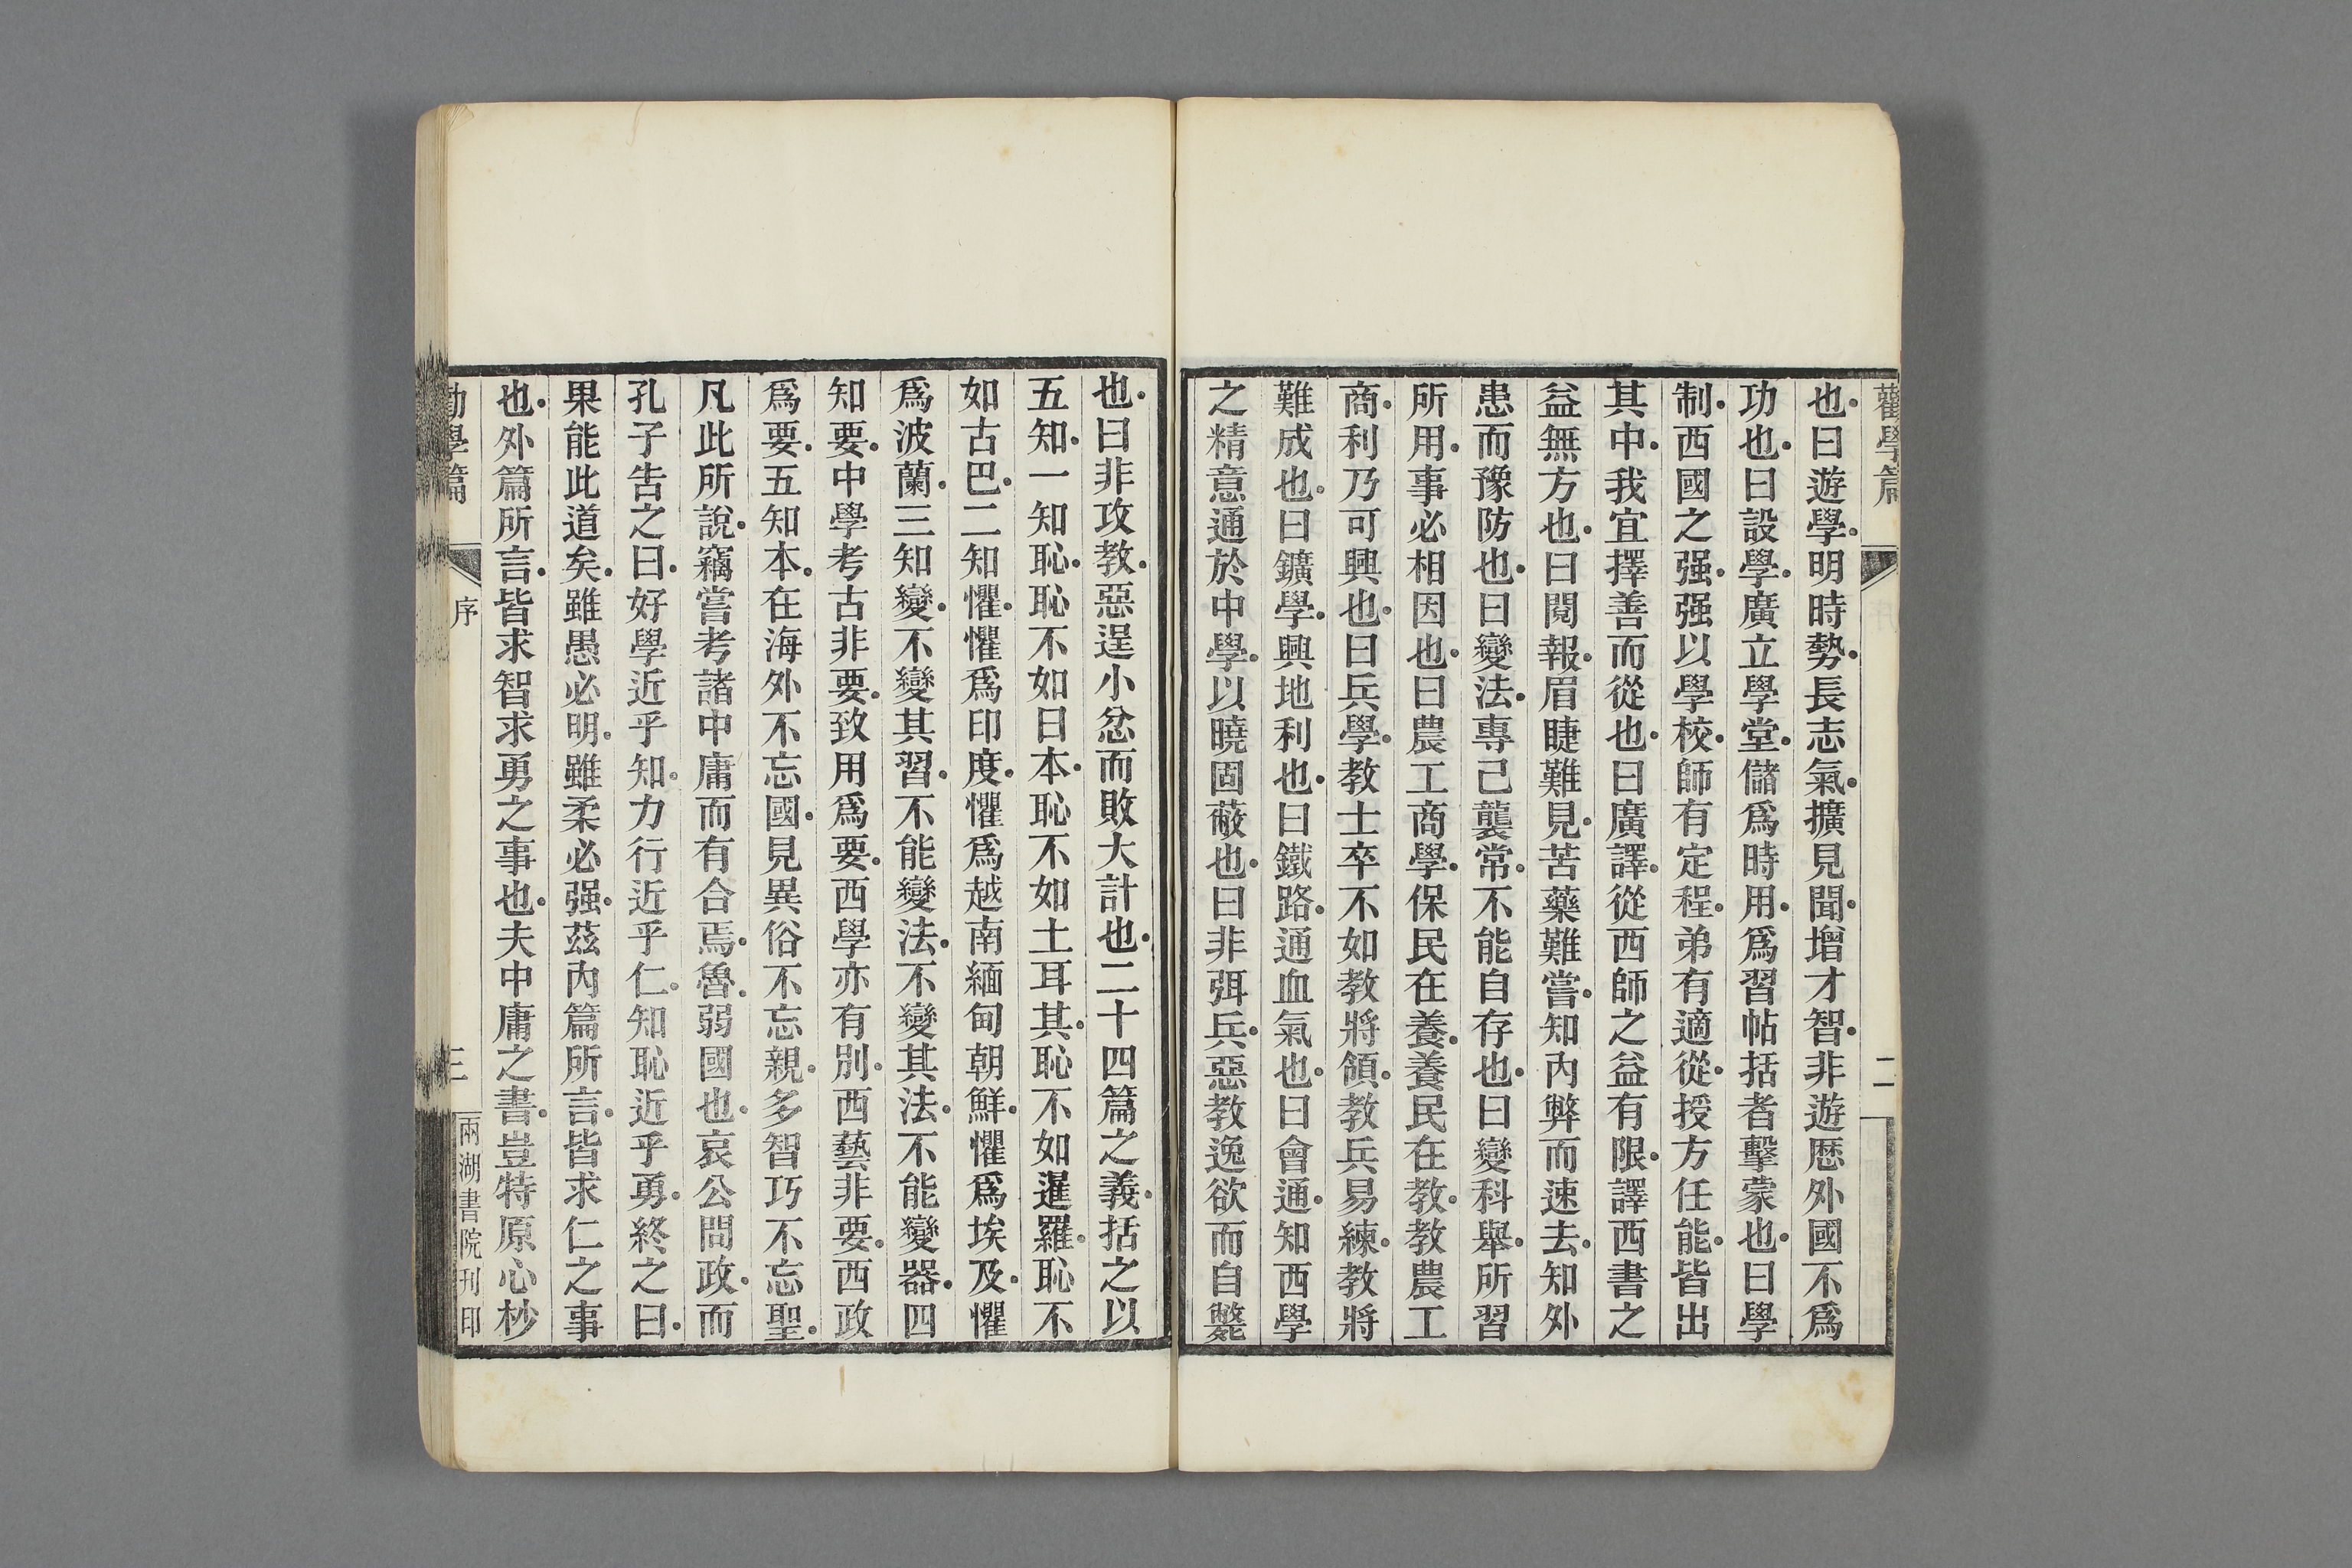 勸學篇
二
也曰遊學明時勢長志氣擴見聞增才智非遊歷外國不爲
功也曰設學廣立學堂儲爲時用爲習帖括者擊蒙也曰學
制西國之强强以學校師有定程弟有適從授方任能皆出
其中我宜擇善而從也曰廣譯從西師之益有限譯西書之
益無方也曰閱報眉睫難見苦藥難嘗知內弊而速去知外
患而豫防也曰變法專己襲常不能自存也曰變科舉所習
所用事必相因也曰農工商學保民在養養民在教教農工
商利乃可興也曰兵學教士卒不如教將領教兵易練教將
難成也曰鑛學興地利也曰鐵路通血氣也曰會通知西學
之精意通於中學以曉固蔽也曰非弭兵惡教逸欲而自斃
也曰非攻教惡逞小忿而敗大計也二十四篇之義括之以
五知一知恥恥不如日本恥不如土耳其恥不如暹羅恥不
如古巴二知懼懼爲印度懼爲越南緬甸朝鮮懼爲埃及懼
爲波蘭三知變不變其習不能變法不變其法不能變器四
知要中學考古非要致用爲要西學亦有別西藝非要西政
爲要五知本在海外不忘國見異俗不忘親多智巧不忘聖
凡此所說竊嘗考諸中庸而有合焉魯弱國也哀公問政而
孔子告之曰好學近乎知力行近乎仁知恥近乎勇終之曰
果能此道矣雖愚必明雖柔必强茲內篇所言皆求仁之事
也外篇所言皆求智求勇之事也夫中庸之書豈特原心杪
勸學篇
序
三
兩湖書院刊印